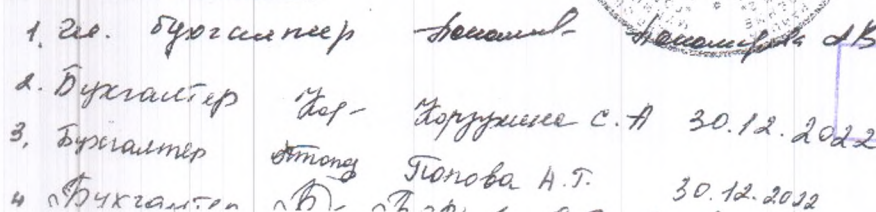 1. Гл. бухгалтер Пономарева АВ
2. Бухгалтер Кор- Корзухина С.А 30.12.2022
3. Бухгалтер Попова Н.Г. 30.12.2022
4 Бухгалтер